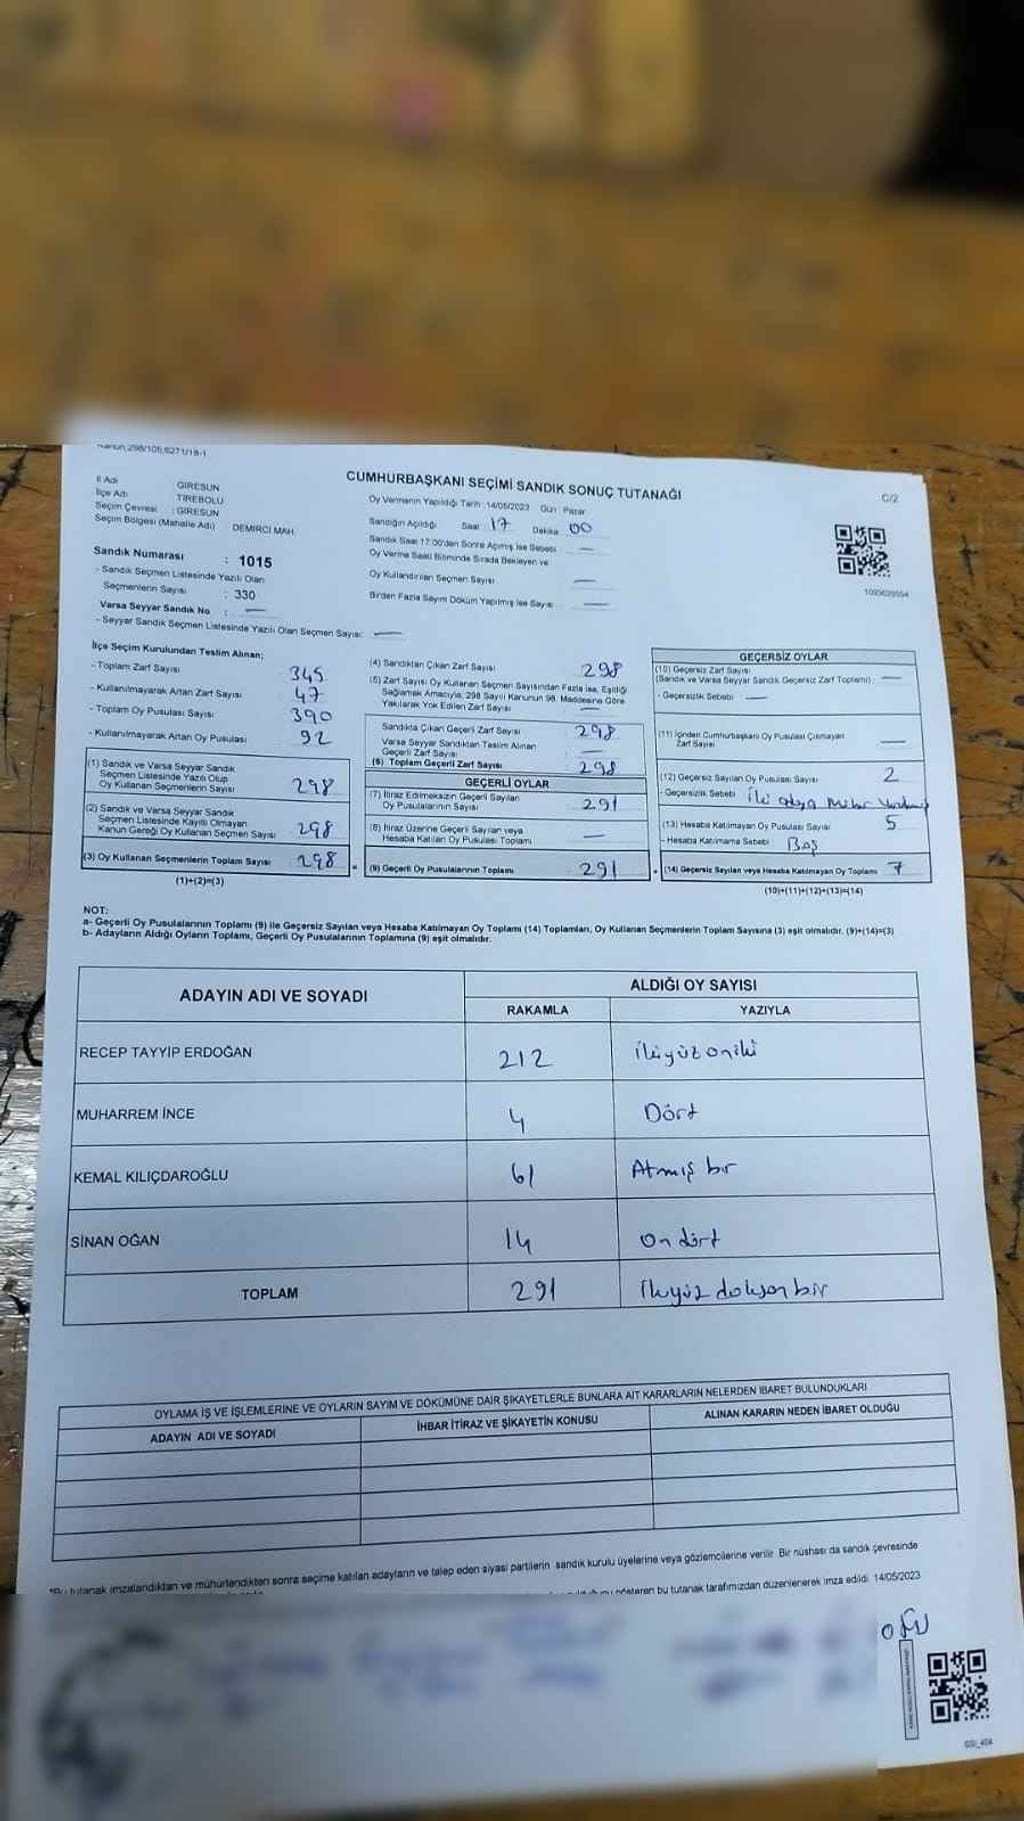 Kanun;298/105;6271/18-1
CUMHURBAŞKANI SEÇİMİ SANDIK SONUÇ TUTANAĞI
C/2
İl Adı GİRESUN
İlçe Adı TİREBOLU
Seçim Çevresi : GİRESUN
Seçim Bölgesi (Mahalle Adı) DEMİRCİ MAH.
Sandık Numarası : 1015
- Sandık Seçmen Listesinde Yazılı Olan
Seçmenlerin Sayısı : 330
Varsa Seyyar Sandık No : —
- Seyyar Sandık Seçmen Listesinde Yazılı Olan Seçmen Sayısı: —
Oy Vermenin Yapıldığı Tarih :14/05/2023 Gün: Pazar
Sandığın Açıldığı Saat 17 Dakika 00
Sandık Saat 17:00'den Sonra Açılmış İse Sebebi —
Oy Verme Saati Bitiminde Sırada Bekleyen ve
Oy Kullandırılan Seçmen Sayısı —
Birden Fazla Sayım Döküm Yapılmış İse Sayısı —
İlçe Seçim Kurulundan Teslim Alınan;
- Toplam Zarf Sayısı 345
- Kullanılmayarak Artan Zarf Sayısı 47
- Toplam Oy Pusulası Sayısı 390
- Kullanılmayarak Artan Oy Pusulası 92
(1) Sandık ve Varsa Seyyar Sandık
Seçmen Listesinde Yazılı Olup
Oy Kullanan Seçmenlerin Sayısı 298
(2) Sandık ve Varsa Seyyar Sandık
Seçmen Listesinde Kayıtlı Olmayan
Kanun Gereği Oy Kullanan Seçmen Sayısı 298
(3) Oy Kullanan Seçmenlerin Toplam Sayısı 298 =
(1)+(2)=(3)
(4) Sandıktan Çıkan Zarf Sayısı 298
(5) Zarf Sayısı Oy Kullanan Seçmen Sayısından Fazla İse, Eşitliği
Sağlamak Amacıyla, 298 Sayılı Kanunun 98. Maddesine Göre
Yakılarak Yok Edilen Zarf Sayısı —
Sandıkta Çıkan Geçerli Zarf Sayısı : 298
Varsa Seyyar Sandıktan Teslim Alınan
Geçerli Zarf Sayısı : —
(6) Toplam Geçerli Zarf Sayısı : 298
GEÇERLİ OYLAR
(7) İtiraz Edilmeksizin Geçerli Sayılan
Oy Pusulalarının Sayısı : 291
(8) İtiraz Üzerine Geçerli Sayılan veya
Hesaba Katılan Oy Pusulası Toplamı —
(9) Geçerli Oy Pusulalarının Toplamı 291 +
GEÇERSİZ OYLAR
(10) Geçersiz Zarf Sayısı
(Sandık ve Varsa Seyyar Sandık Geçersiz Zarf Toplamı) : —
- Geçersizlik Sebebi : —
(11) İçinden Cumhurbaşkanı Oy Pusulası Çıkmayan
Zarf Sayısı —
(12) Geçersiz Sayılan Oy Pusulası Sayısı 2
- Geçersizlik Sebebi : İki
(13) Hesaba Katılmayan Oy Pusulası Sayısı 5
- Hesaba Katılmama Sebebi : Boş
(14) Geçersiz Sayılan veya Hesaba Katılmayan Oy Toplamı 7
(10)+(11)+(12)+(13)=(14)
NOT:
a- Geçerli Oy Pusulalarının Toplamı (9) ile Geçersiz Sayılan veya Hesaba Katılmayan Oy Toplamı (14) Toplamları, Oy Kullanan Seçmenlerin Toplam Sayısına (3) eşit olmalıdır. (9)+(14)=(3)
b- Adayların Aldığı Oyların Toplamı, Geçerli Oy Pusulalarının Toplamına (9) eşit olmalıdır.
ADAYIN ADI VE SOYADI
ALDIĞI OY SAYISI
RAKAMLA YAZIYLA
RECEP TAYYİP ERDOĞAN 212 İkiyüz oniki
MUHARREM İNCE 4 Dört
KEMAL KILIÇDAROĞLU 61 Atmış bir
SİNAN OĞAN 14 On dört
TOPLAM 291 İkiyüz doksan bir
OYLAMA İŞ VE İŞLEMLERİNE VE OYLARIN SAYIM VE DÖKÜMÜNE DAİR ŞİKAYETLERLE BUNLARA AİT KARARLARIN NELERDEN İBARET BULUNDUKLARI
ADAYIN ADI VE SOYADI İHBAR İTİRAZ VE ŞİKAYETİN KONUSU ALINAN KARARIN NEDEN İBARET OLDUĞU
*Bu tutanak imzalandıktan ve mühürlendikten sonra seçime katılan adayların ve talep eden siyasi partilerin sandık kurulu üyelerine veya gözlemcilerine verilir. Bir nüshası da sandık çevresinde
gösteren bu tutanak tarafımızdan düzenlenerek imza edildi. 14/05/2023